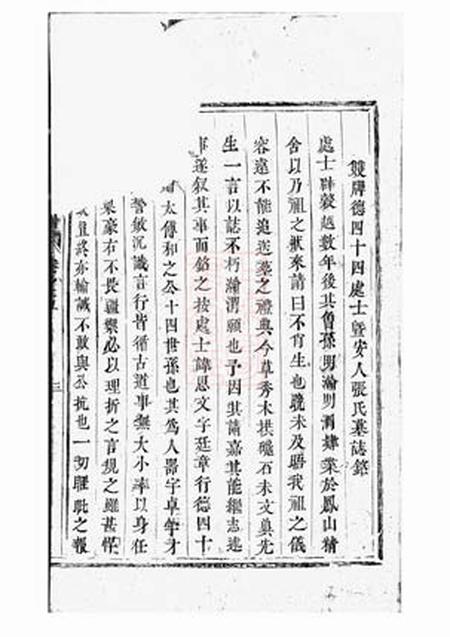 雙牌德四十四處士暨安人張氏墓誌銘
處士辭襲越數年後其曾孫男瀚則渭肄業於鳳山精
舍以乃祖之狀來請曰不肖生也晚未及晤我祖之儀
容遠不能追送葬之禮典今草秀木拱礲石未文奠先
生一言以誌不朽瀚渭願也予因其請嘉其能繼志述
事遂叙其事而銘之按處士諱思文字廷章行德四十
太傅和之公十四世孫也其為人器字卓犖才
警敏沉識言行皆循古道事無大小率以身任
果豪右不畏疆禦必以理折之言規之雖甚悍
且終亦輸誠不敢與公抗也一切睚眦之報
三